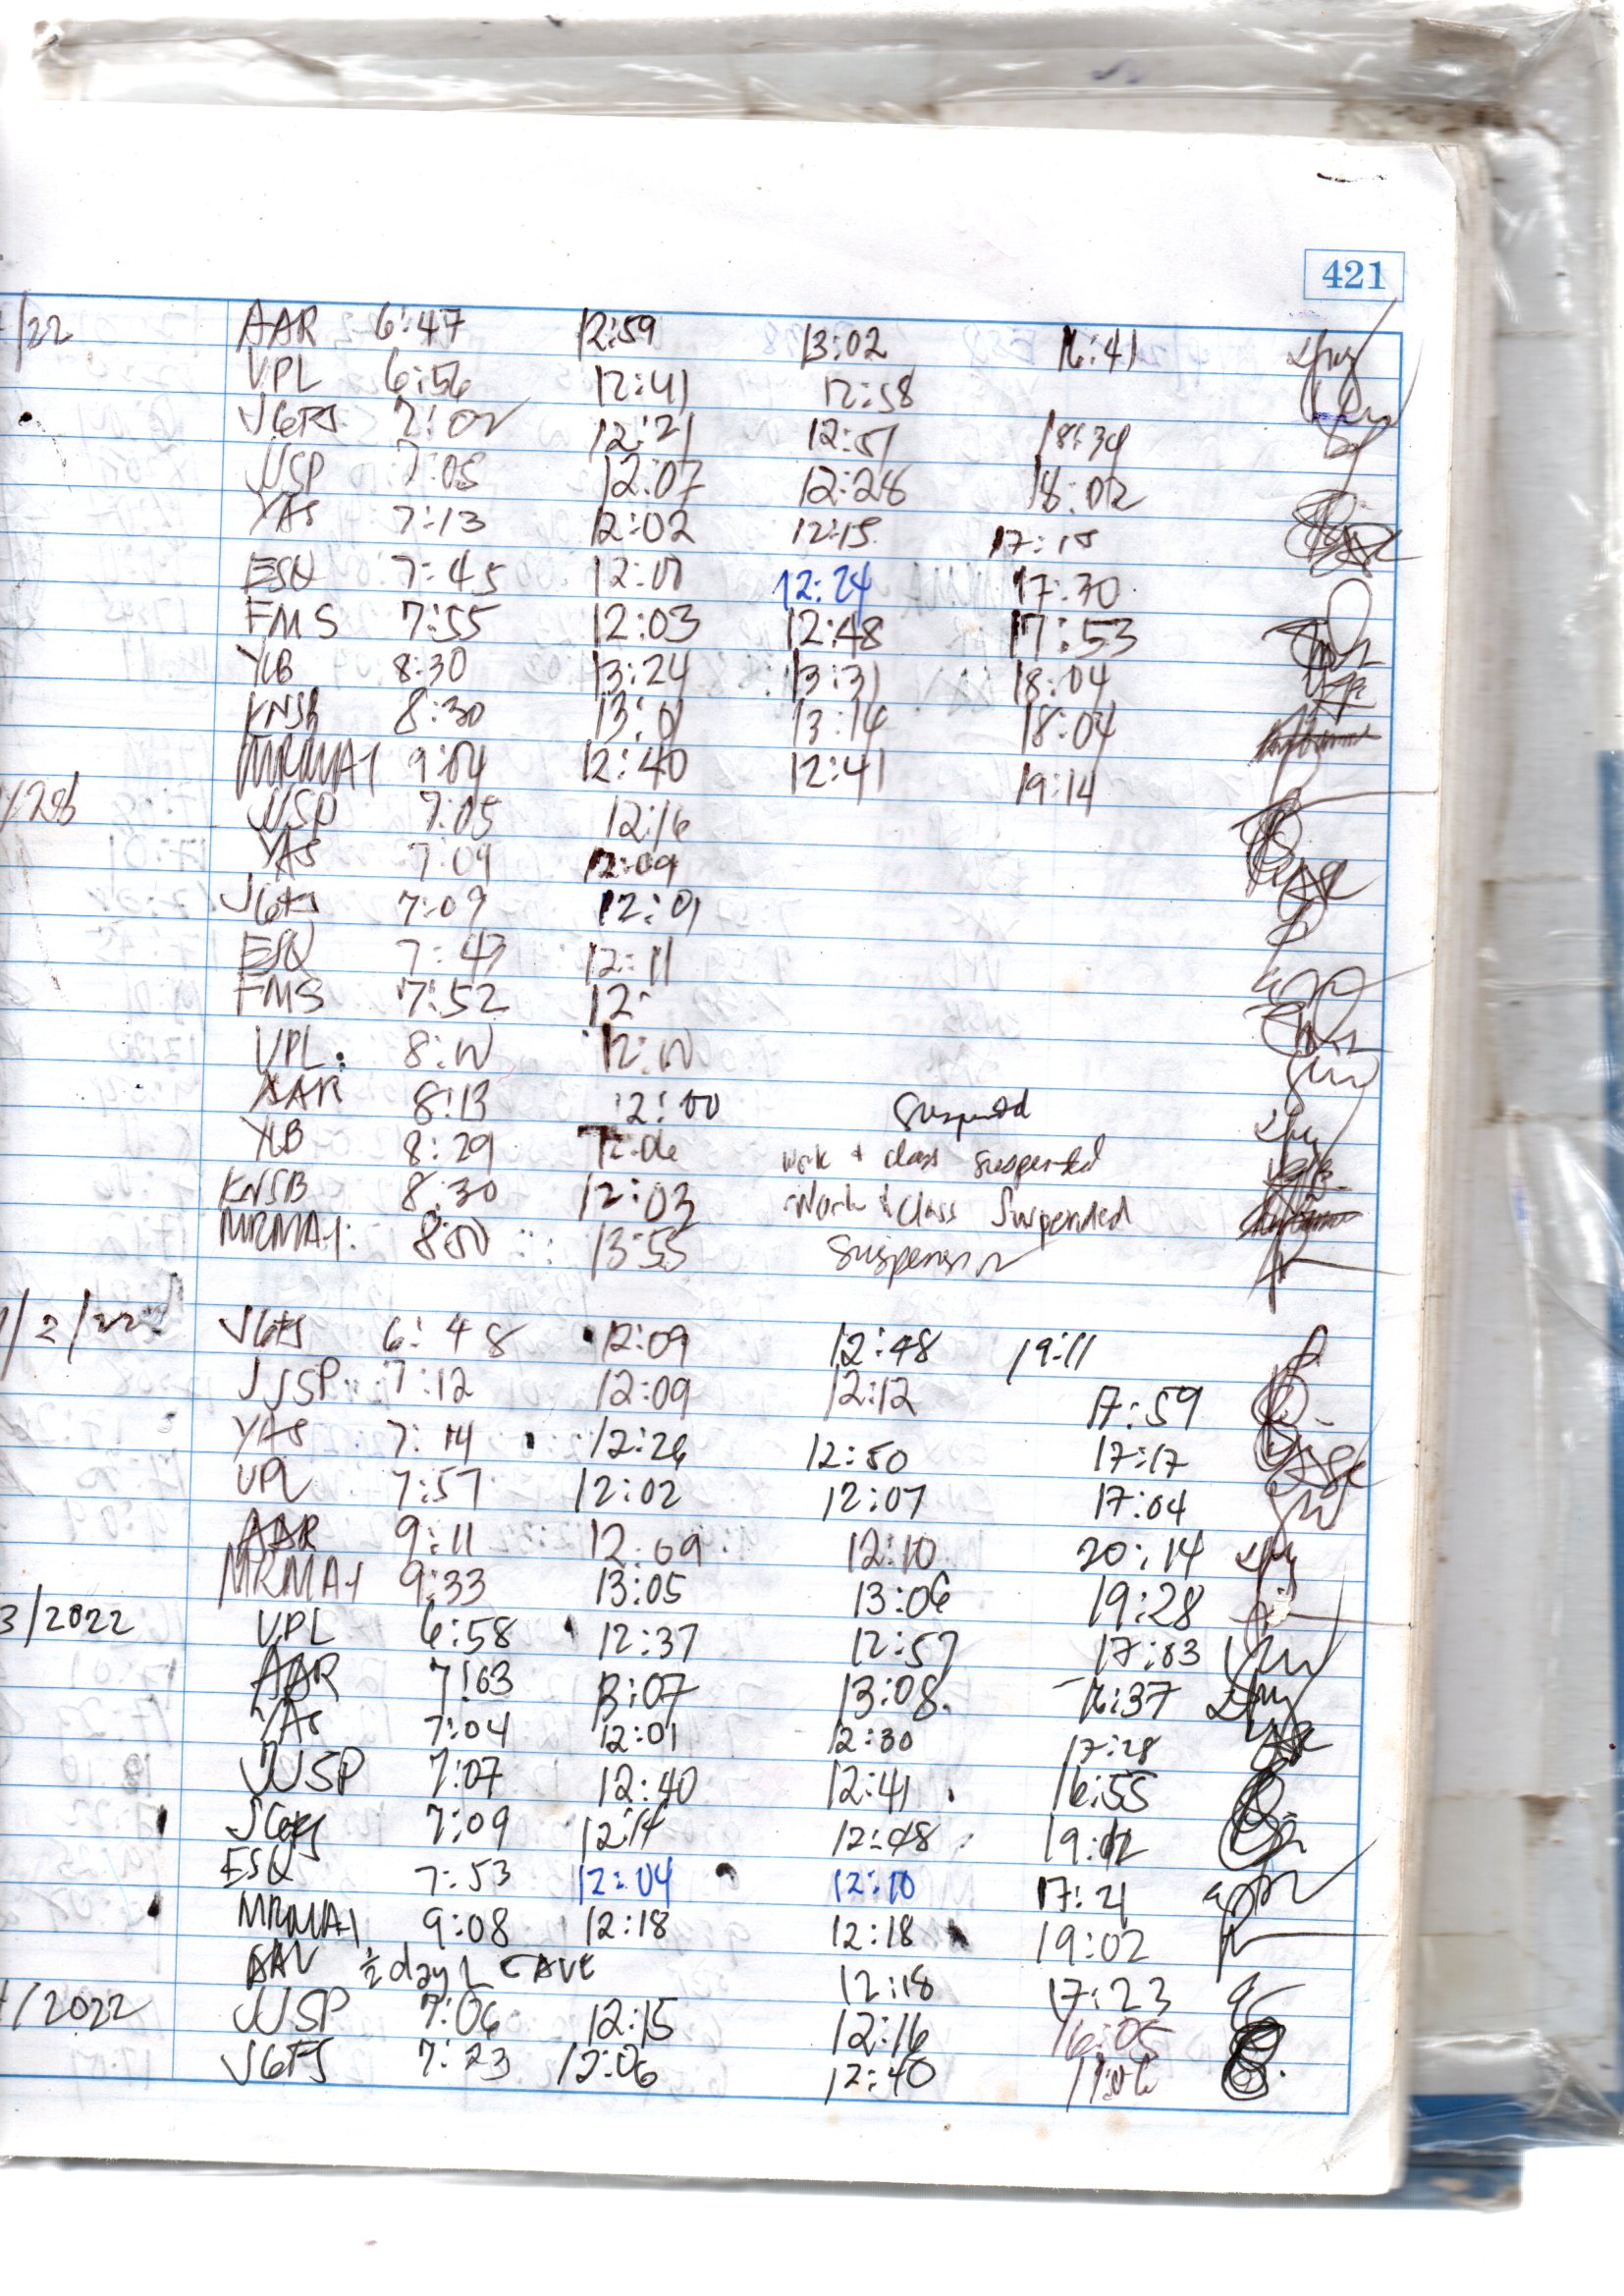 421
/22 AAR 6:47 12:59 13:02 16:41
VPL 6:56 12:41 12:58
JGFS 7:02 12:21 12:51 18:34
JJSP 7:05 12:07 12:28 18:02
YAS 7:13 12:02 12:15 17:15
ESQ 7:45 12:00 12:24 17:30
FMS 7:55 12:03 12:48 17:53
YLB 8:30 13:24 13:31 18:04
KNSB 8:30 13:01 13:14 18:04
MRMA1 9:04 12:40 12:41 19:14
JJSP 7:05 12:16
YAS 7:09 12:09
JGFS 7:09 12:01
ESQ 7:47 12:11
FMS 7:52 12:
VPL 8:10 12:10
AAR 8:13 12:00 Suspended
YLB 8:29 12:06 work & class suspended
KNSB 8:30 12:03 Work & Class Suspended
MRMA1 8:50 13:55 Suspension
/2/22 JGFS 6:48 12:09 12:48 19:11
JJSP 7:12 12:09 12:12 17:59
YAS 7:14 12:26 12:50 17:17
VPL 7:57 12:02 12:07 17:04
AAR 9:11 12:09 12:10 20:14
MRMA1 9:33 13:05 13:06 19:28
3/2022 VPL 6:58 12:37 12:57 17:03
AAR 7:03 13:07 13:08 16:37
YAS 7:04 12:01 12:30 17:28
JJSP 7:07 12:40 12:41 16:55
JGFS 7:09 12:14 12:48 19:12
ESQ 7:53 12:04 12:10 17:21
MRMA1 9:08 12:18 12:18 19:02
AAV ½ day LEAVE 12:18 17:23
/2022 JJSP 7:06 12:15 12:16 16:05
JGFS 7:23 12:06 12:40